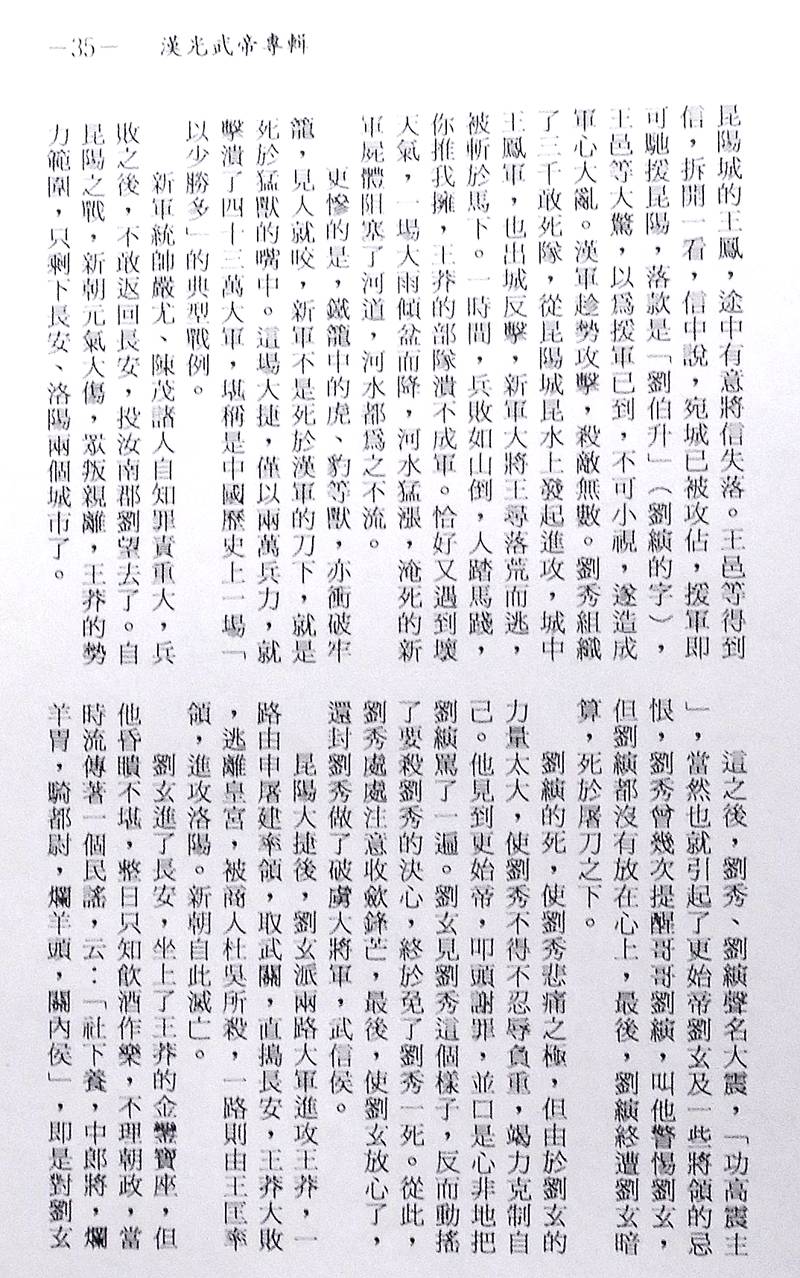 —35—　漢光武帝專輯
昆陽城的王鳳，途中有意將信失落。王邑等得到
信，拆開一看，信中說，宛城已被攻佔，援軍即
可馳援昆陽，落款是「劉伯升」（劉縯的字），
王邑等大驚，以為援軍已到，不可小視，遂造成
軍心大亂。漢軍趁勢攻擊，殺敵無數。劉秀組織
了三千敢死隊，從昆陽城昆水上發起進攻，城中
王鳳軍，也出城反擊，新軍大將王尋落荒而逃，
被斬於馬下。一時間，兵敗如山倒，人踏馬踐，
你推我擁，王莽的部隊潰不成軍。恰好又遇到壞
天氣，一場大雨傾盆而降，河水猛漲，淹死的新
軍屍體阻塞了河道，河水都為之不流。
更慘的是，鐵籠中的虎、豹等獸，亦衝破牢
籠，見人就咬，新軍不是死於漢軍的刀下，就是
死於猛獸的嘴中。這場大捷，僅以兩萬兵力，就
擊潰了四十三萬大軍，堪稱是中國歷史上一場「
以少勝多」的典型戰例。
新軍統帥嚴尤、陳茂諸人自知罪責重大，兵
敗之後，不敢返回長安，投汝南郡劉望去了。自
昆陽之戰，新朝元氣大傷，眾叛親離，王莽的勢
力範圍，只剩下長安、洛陽兩個城市了。
這之後，劉秀、劉縯聲名大震，「功高震主
」，當然也就引起了更始帝劉玄及一些將領的忌
恨，劉秀曾幾次提醒哥哥劉縯，叫他警惕劉玄，
但劉縯都沒有放在心上，最後，劉縯終遭劉玄暗
算，死於屠刀之下。
劉縯的死，使劉秀悲痛之極，但由於劉玄的
力量太大，使劉秀不得不忍辱負重，竭力克制自
己。他見到更始帝，叩頭謝罪，並口是心非地把
劉縯罵了一遍。劉玄見劉秀這個樣子，反而動搖
了要殺劉秀的決心，終於免了劉秀一死。從此，
劉秀處處注意收歛鋒芒，最後，使劉玄放心了，
還封劉秀做了破虜大將軍，武信侯。
昆陽大捷後，劉玄派兩路大軍進攻王莽，一
路由申屠建率領，取武關，直搗長安，王莽大敗
，逃離皇宮，被商人杜吳所殺，一路則由王匡率
領，進攻洛陽。新朝自此滅亡。
劉玄進了長安，坐上了王莽的金鑾寶座，但
他昏瞶不堪，整日只知飲酒作樂，不理朝政，當
時流傳著一個民謠，云：「社下養，中郎將，爛
羊胃，騎都尉，爛羊頭，關內侯」，即是對劉玄